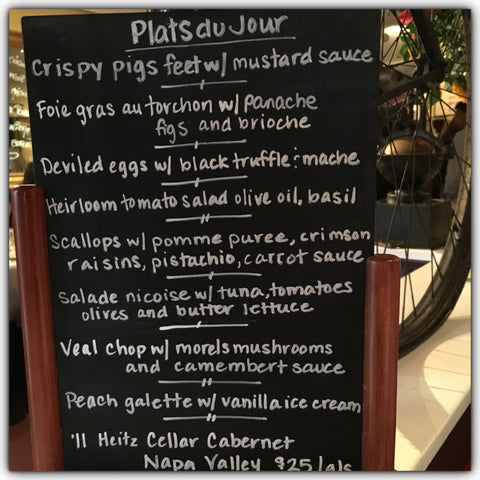 Plats du Jour
Crispy pigs feet w/ mustard sauce
Foie gras au torchon w/ panache
figs and brioche
Deviled eggs w/ black truffle : mache
Heirloom tomato salad olive oil, basil
Scallops w/ pomme puree, crimson
raisins, pistachio, carrot sauce
Salade nicoise w/ tuna, tomatoes
olives and butter lettuce
Veal chop w/ morels mushrooms
and camembert sauce
Peach galette w/ vanilla ice cream
'11 Heitz Cellar Cabernet
Napa Valley $25/gls